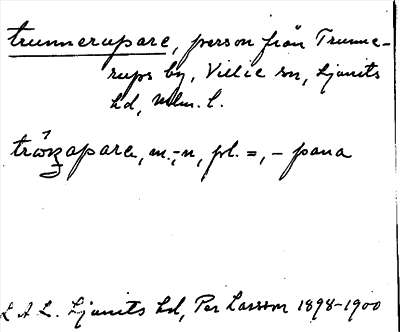 trunnerupare, person från Trunne-
rups by, Villie sn, Ljunits
hd, Mlm. l.
trånzapara, m., -n, pl. =, – pana
L A L. Ljunits hd, Per Larsson 1898–1900